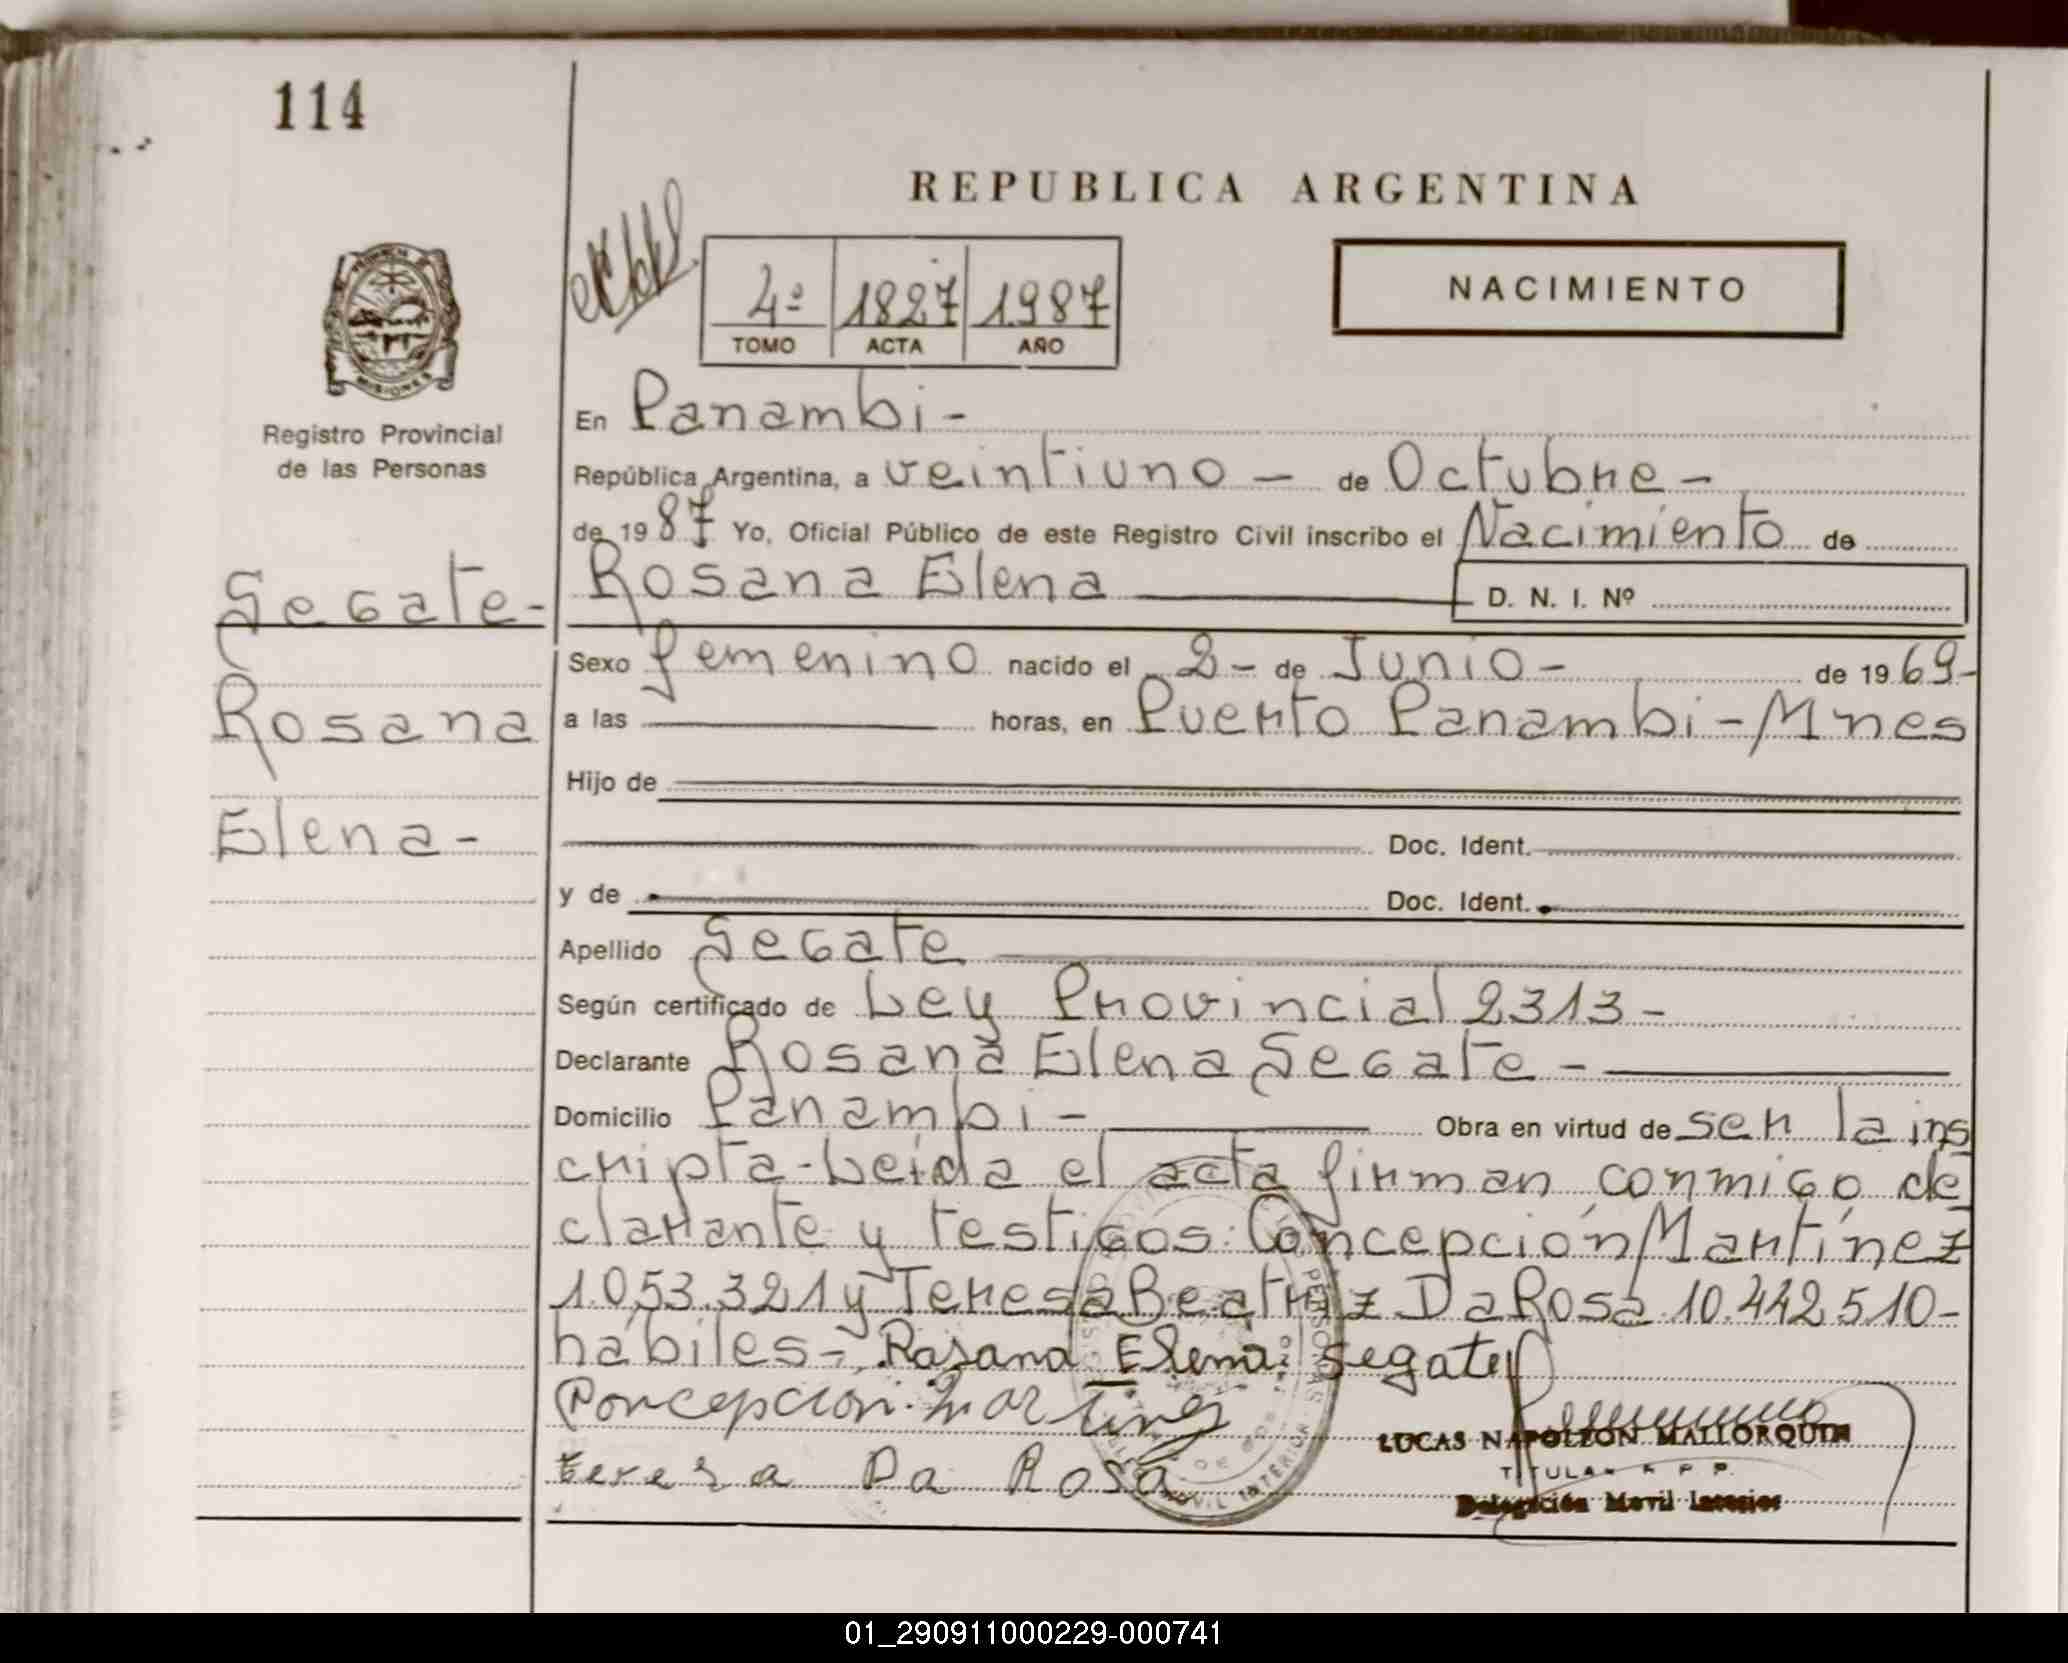 114
REPUBLICA ARGENTINA
4º 1827 1987
TOMO ACTA AÑO
NACIMIENTO
PROVINCIA DE
MISIONES
Registro Provincial
de las Personas
Segate-
Rosana
Elena-
En Panambi-
República Argentina, a veintiuno - de Octubre-
de 1987 Yo, Oficial Público de este Registro Civil inscribo el Nacimiento de
Rosana Elena D. N. I. Nº
Sexo femenino nacido el 2- de Junio- de 1969-
a las horas, en Puerto Panambi-Mnes
Hijo de
Doc. Ident.
y de Doc. Ident.
Apellido Segate
Según certificado de Ley Provincial 2313-
Declarante Rosana Elena Segate-
Domicilio Panambi- Obra en virtud de ser la ins
cripta-Leída el acta firman conmigo de
clarante y testigos: Concepción Martínez
1.053.321 y Teresa Beatriz Da Rosa 10.442.510-
hábiles- Rosana Elena Segate
Concepcion Martinez
teresa Da Rosa
LUCAS NAPOLEON MALLORQUIN
TITULAR R P P.
Delegación Movil Interior
01_290911000229-000741